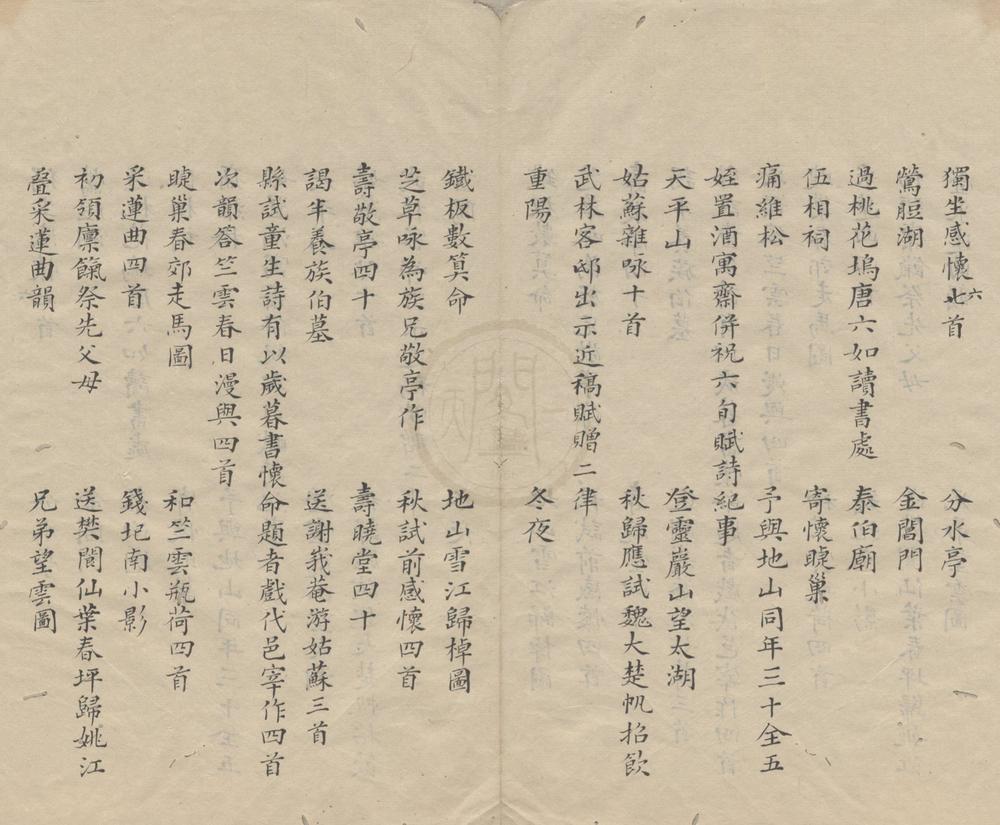 獨坐感懷六首 分水亭
鶯脰湖 金閶門
過桃花塢唐六如讀書處 泰伯廟
伍相祠 寄懷睫巢
痛維松 予與地山同年三十仝五
姪置酒寓齋併祝六旬賦詩紀事
天平山 登靈巖山望太湖
姑蘇雜咏十首 秋歸應試魏大楚帆招飲
武林客邸出示近稿賦贈二律
重陽 冬夜
鐵板數算命 地山雪江歸棹圖
芝草咏為族兄敬亭作 秋試前感懷四首
壽敬亭四十 壽曉堂四十
謁半養族伯墓 送謝我菴游姑蘇三首
縣試童生詩有以歲暮書懷命題者戲代邑宰作四首
次韻答竺雲春日漫興四首
睫巢春郊走馬圖 和竺雲瓶荷四首
采蓮曲四首 錢圯南小影
初領廩餼祭先父母 送樊閬仙葉春坪歸姚江
疊采蓮曲韻 兄弟望雲圖